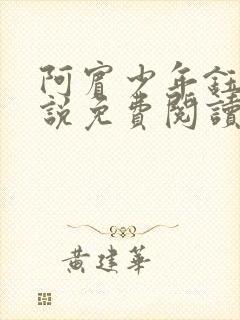 阿賓少年鈺
說免費閱讀
黃建華